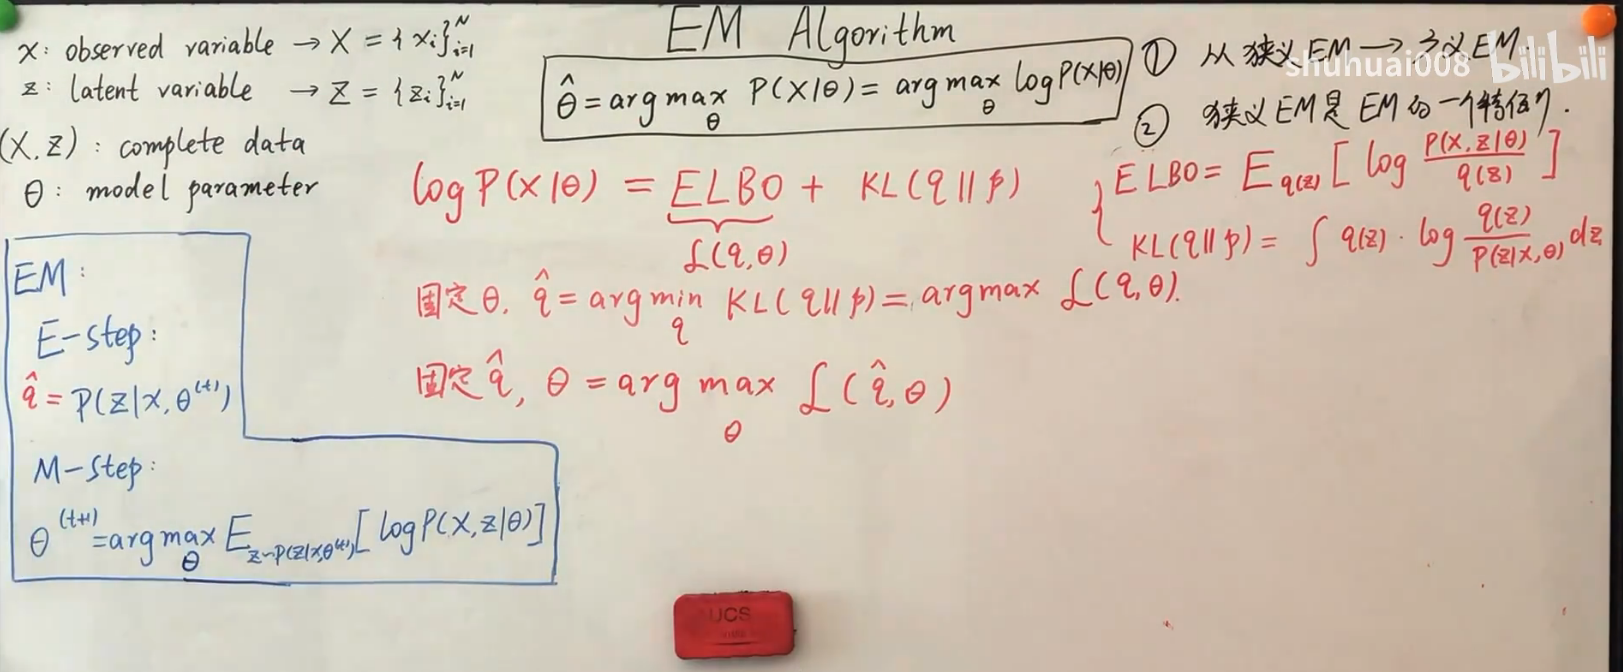 EM Algorithm
x: observed variable → X = {xi}ᴺᵢ₌₁
z: latent variable → Z = {zi}ᴺᵢ₌₁
(X, Z): complete data
θ: model parameter
θ̂ = arg max_θ P(X|θ) = arg max_θ log P(X|θ)
① 从狭义EM → 广义EM.
② 狭义EM是EM的一个特例.
shuhuai008 bilibili
log P(X|θ) = ELBO + KL(q||p)
L(q,θ)
{ ELBO = E_q(z) [ log P(X,Z|θ) / q(z) ]
KL(q||p) = ∫ q(z) · log q(z) / P(z|x,θ) dz
固定θ. q̂ = arg min_q KL(q||p) = arg max L(q,θ).
固定q̂, θ = arg max_θ L(q̂,θ)
EM:
E-step:
q̂ = P(z|x,θ⁽ᵗ⁾)
M-step:
θ⁽ᵗ⁺¹⁾ = arg max_θ E_z~P(z|x,θ⁽ᵗ⁾) [log P(X,z|θ)]
UCS